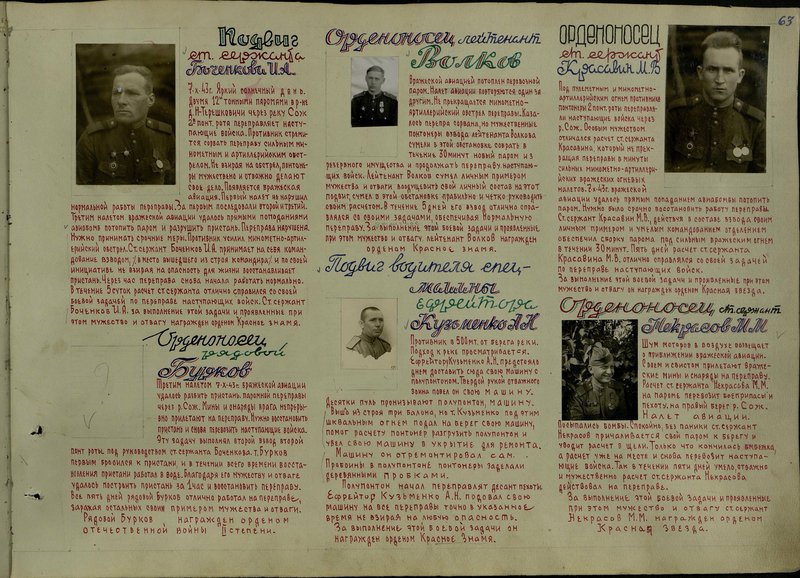 63
Подвиг
ст. сержанта
Боченкова И.А.
7-х-43г. Яркий солнечный день.
Двумя 12ᵗ тонными паромами в р-не
д. Н-Терешковичи через реку Сож
2ᵒᶦ понт. рота переправляет насту-
пающие войска. Противник стреми-
тся сорвать переправу сильным ми-
нометным и артиллерийским обст-
релом. Не взирая на обстрел, понтоне-
ры мужественно и отважно делают
свое дело. Появляется вражеская
авиация. Первый налет не нарушил
нормальной работы переправы. За первым последовали второй и третий.
Третим налетом вражеской авиации удалось прямыми попаданиями
авиабомб потопить паром и разрушить пристань. Переправа нарушена.
Нужно принимать срочные меры. Противник усилил минометно-артил-
лерийский обстрел. Ст. сержант Боченков И.А. принимает на себя коман-
дование взводом, /вместо вышедшего из строя командира/ и по своей
инициативе не взирая на опасность для жизни восстанавливает
пристань. Через час переправа снова начала работать нормально.
В течение 5 суток расчет ст. сержанта отлично справился со своей
боевой задачей по переправе наступающих войск. Ст. сержант
Боченков И.А. за выполнение этой задачи и проявленные при
этом мужество и отвагу награжден орденом Красное знамя.
Орденоносец
рядовой
Бурков
Третим налетом 7-х-43г. вражеской авиации
удалось разбить пристань паромной переправы
через р. Сож. Мины и снаряды врага непреры-
вно прилетают на переправу. Нужно восстановить
пристань и снова перевозить наступающие войска.
Эту задачу выполнял второй взвод второй
понт роты, под руководством ст. сержанта Боченкова. т. Бурков
первым бросился к пристани, и в течении всего времени восста-
новления пристани работал в воде. Благодаря его мужеству и отваге
удалось построить пристань за 1 час и восстановить переправу.
Все пять дней рядовой Бурков отлично работал на переправе,
заражая остальных своим примером мужества и отваги.
Рядовой Бурков награжден орденом
отечественной войны II степени.
Орденоносец лейтенант
Волков
Вражеской авиацией потоплен перевозной
паром. Налет авиации повторяется один за
другим. Не прекращается минометно-
артиллерийский обстрел переправы. Каза-
лось переправа сорвана, но мужественные
понтонеры взвода лейтенанта Волкова
сумели в этой обстановке собрать в
течение 30 минут новый паром из
резервного имущества и продолжать переправу наступаю-
щих войск. Лейтенант Волков сумел личным примером
мужества и отваги воодушевить свой личный состав на этот
подвиг, сумел в этой обстановке правильно и четко руководить
своим расчетом. В течение 5 дней его взвод отлично справ-
лялся со своими задачами, обеспечивая нормальную
переправу. За выполнение этой боевой задачи и проявленные
при этом мужество и отвагу лейтенант Волков награжден
орденом Красное знамя.
Подвиг водителя спец-
машины
ефрейтора
Кузьменко А.Н
Противник в 500 мт. от берега реки.
Подход к реке просматривается.
Ефрейтору Кузьменко А.Н, предстояло
днем доставить сюда свою машину с
полупонтоном. Твердой рукой отважного
воина повел он свою машину.
Десятки пуль пронизывают полупонтон, машину.
Вышь из строя три балона, но т. Кузьменко под этим
шквальным огнем подал на берег свою машину,
помог расчету понтонер разгрузить полупонтон и
увел свою машину в укрытие для ремонта.
Машину он отремонтировал сам.
Пробоины в полупонтоне понтонеры заделали
деревянными пробками.
Полупонтон начал переправлят десант пехоты.
Ефрейтор Кузьменко А.Н. подавал свою
машину на все переправы точно в указанное
время не взирая на любую опасность.
За выполнение этой боевой задачи он
награжден орденом Красное Знамя.
Орденоносец
ст. сержант
Красавин М.В
Под пулеметным и минометно-
артиллерийским огнем противника
понтонеры 2 понт. роты переправля-
ли наступающие войска через
р. Сож. Особым мужеством
отличался расчет ст. сержанта
Красавина, который не прек-
ращая переправы в минуты
сильных минометно-артиллерий-
ских вражеских огневых
налетов. 2-х-43г. вражеской
авиации удалось прямым попаданием авиабомбы потопить
паром. Нужно было срочно восстановить работу переправы.
Ст. сержант Красавин М.В., действуя в составе взвода своим
личным примером и умелым командованием отделением
обеспечил сборку парома под сильным вражеским огнем
в течении 30 минут. Пять дней расчет ст. сержанта
Красавина М.В. отлично справлялся со своей задачей
по переправе наступающих войск.
За выполнение этой боевой задачи и проявленные при этом
мужество и отвагу он награжден орденом Красная звезда.
Орденоносец ст. сержант
Некрасов М.М
Шум моторов в воздухе возвещает
о приближении вражеской авиации.
Своем и свистом прилетают враже-
ские мины и снаряды на переправу.
Расчет ст. сержанта Некрасова М.М.
на пароме перевозит военприпасы и
пехоту, на правый берег р. Сож.
Налет авиации.
Посыпались бомбы. Спокойно, без паники ст. сержант
Некрасов причаливается свой паром к берегу и
уводит расчет в щели. Только что кончилась бомбежка,
а расчет уже на месте и снова перевозит наступа-
ющие войска. Так в течении пяти дней умело, отважно
и мужественно расчет ст. сержанта Некрасова
действовал на переправе.
За выполнение этой боевой задачи и проявленные
при этом мужество и отвагу ст. сержант
Некрасов М.М. награжден орденом
Красная звезда.